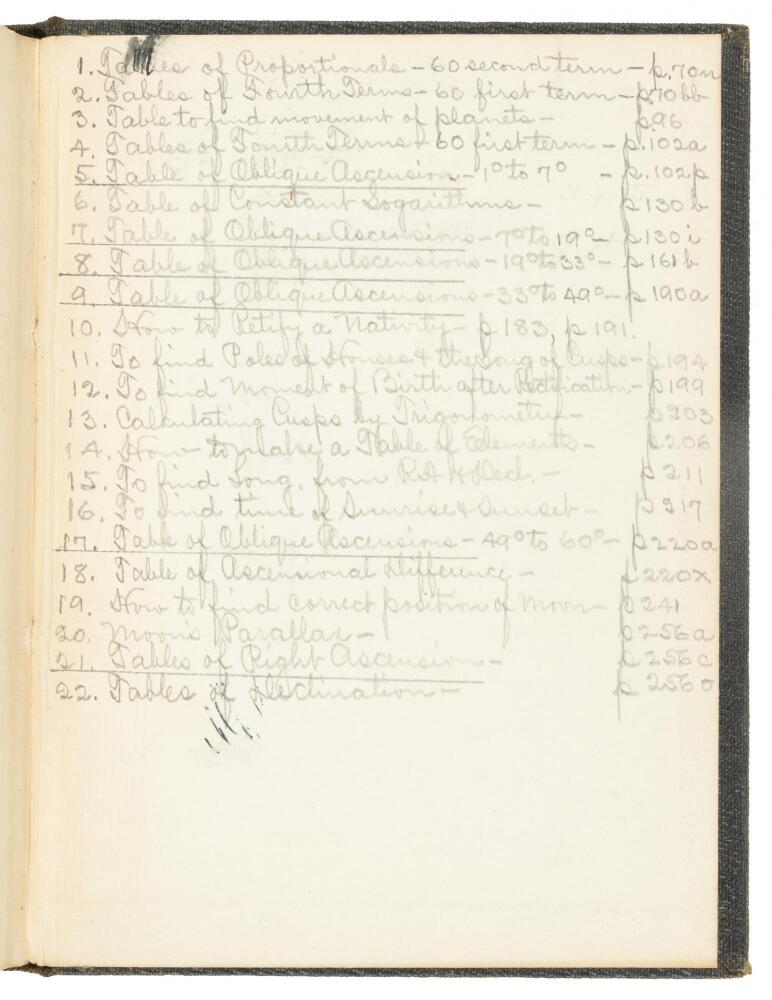 1. Tables of Proportionals - 60 second term - p. 70n
2. Tables of Fourth Terms - 60 first term - p. 70bb
3. Table to find movement of planets - p. 96
4. Tables of Fourth Terms - 60 first term - p. 102a
5. Table of Oblique Ascension - 1° to 7° - p. 102p
6. Table of Constant Logarithms - p 130b
7. Table of Oblique Ascensions - 7° to 19° - p 130i
8. Table of Oblique Ascensions - 19° to 33° - p 161b
9. Table of Oblique Ascensions - 33° to 49° - p 190a
10. How to Retify a Nativity - p 183, p 191.
11. To find Poles of Houses & the Long of Cusps - p. 194
12. To find Moment of Birth after Rectification - p 199
13. Calculating Cusps by Trigonometry - p 203
14. How to make a Table of Edements - p 206
15. To find Long. from RA & Decl. - p 211
16. To find time of Sunrise & Sunset - p 217
17. Table of Oblique Ascensions - 49° to 60° - p 220a
18. Table of Ascensional Difference - p 220x
19. How to find correct position of Moon - p 241
20. Moon's Parallax - p 256a
21. Tables of Right Ascension - p 256c
22. Tables of Declination - p 256o